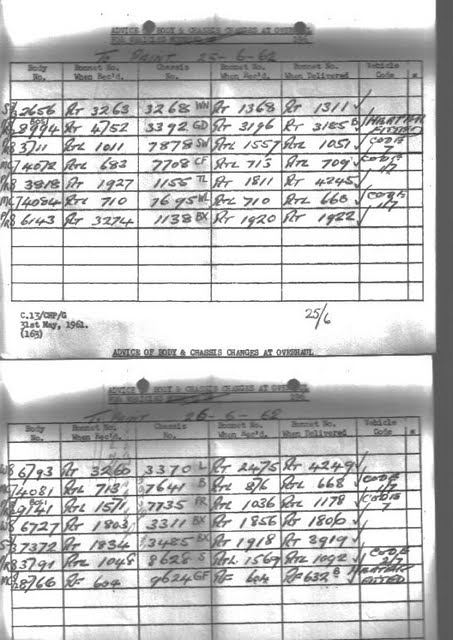 ADVICE OF BODY & CHASSIS CHANGES AT OVERHAUL
FOR VEHICLES
To PAINT 25-6-62
Body No. Bonnet No. When Rec'd. Chassis No. Bonnet No. When Rec'd. Bonnet No. When Delivered Vehicle Code *
2656 RT 3263 3268 WN RT 1368 RT 1311 ✓
8994 RT 4752 3392 GD RT 3196 RT 3185 ✓ HEATER FITTED
3711 RTL 1011 7878 SW RTL 1557 RTL 1051 ✓ CODE 7
4072 RTL 683 7708 CF RTL 713 RTL 709 ✓ CODE
3818 RT 1927 1155 TL RT 1811 RT 4245 ✓
4084 RTL 710 7695 WL RTL 710 RTL 660 ✓ CODE
6143 RT 3274 1138 BX RT 1920 RT 1922 ✓
C.13/CHP/G
31st May, 1961.
(163)
25/6
ADVICE OF BODY & CHASSIS CHANGES AT OVERHAUL
ADVICE OF BODY & CHASSIS CHANGES AT OVERHAUL
FOR VEHICLES
To PAINT 26-6-62
Body No. Bonnet No. When Rec'd. Chassis No. Bonnet No. When Rec'd. Bonnet No. When Delivered Vehicle Code *
6793 RT 3260 3370 L RT 2475 RT 4249 ✓
4081 RTL 713 7641 B RTL RTL 668 ✓ CODE
9141 RTL 1571 7735 FR RTL 1036 RTL 1178 ✓ CODE 7
6727 RT 1803 3311 BX RT 1856 RT 1806 ✓
7372 RT 1834 3485 BX RT 1918 RT 3919 ✓
3791 RTL 1048 8628 S RTL 1569 RTL 1092 ✓ CODE
8766 RF 604 9624 GF RF 604 RF 632 HEATER FITTED